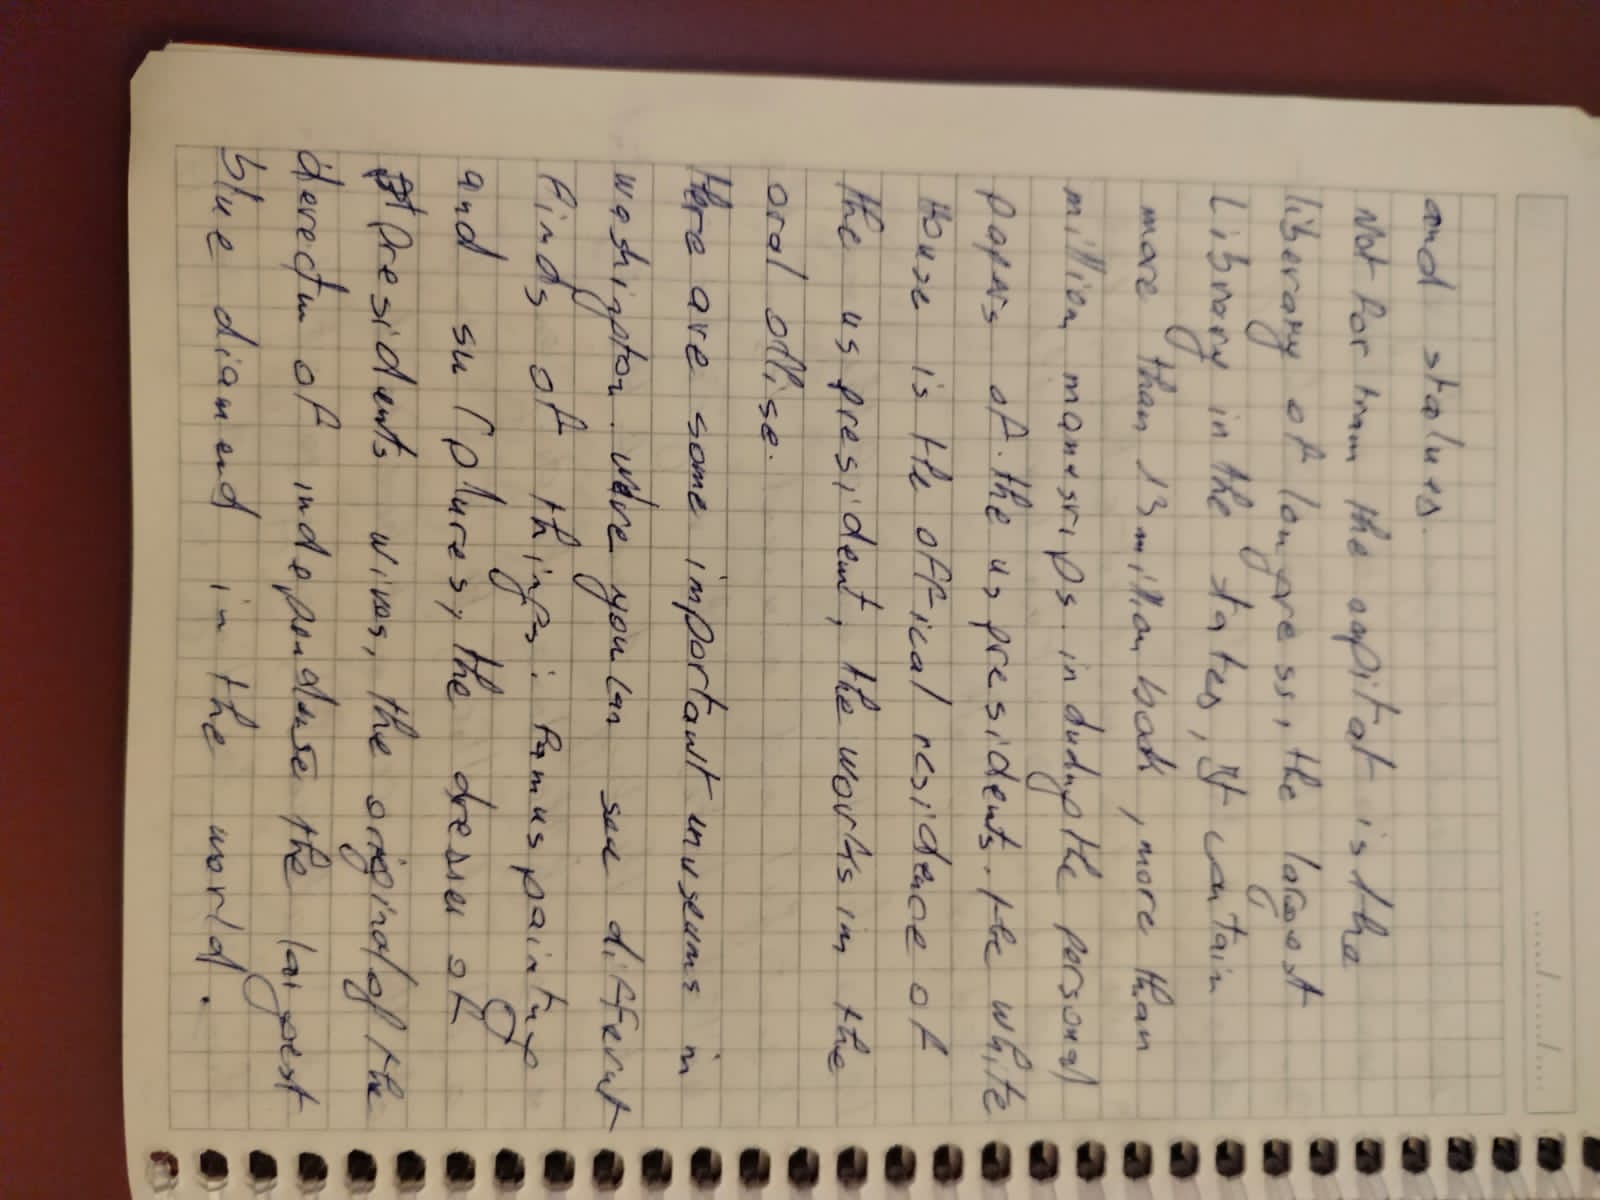 and statues.
Not For tram the capital is the
liberary of longress, the largest
Library in the states, it contain
more than 13 million book, more than
million manesrips. indudyng the personal
papers of the us presidents. the white
House is the offical residence of
the us president, the works in the
oral offise.
there are some important museums in
washigpton. were you can see different
finds of things: famus paintings
and sulptures, the dresses of
Presidents wives, the original of the
derectun of independense the largest
blue diamend in the world.